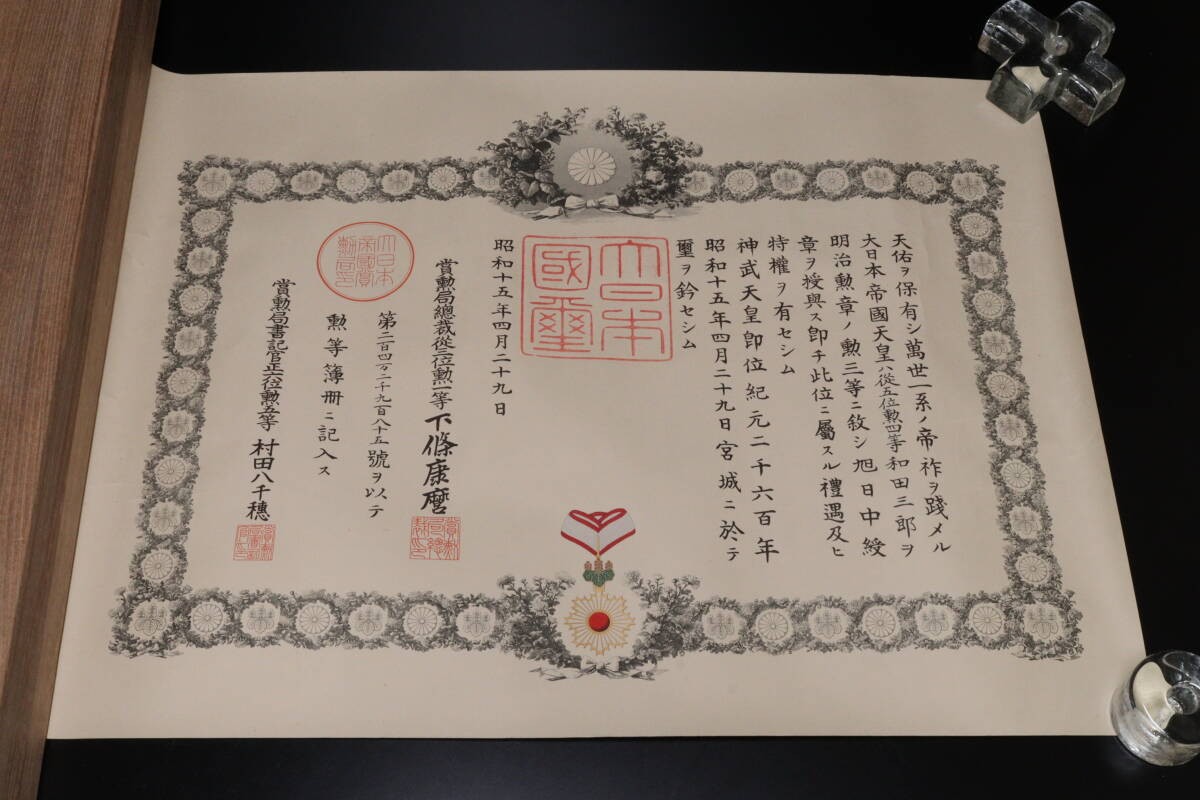 天佑ヲ保有シ萬世一系ノ帝祚ヲ踐メル
大日本帝國天皇ハ從五位勲四等和田三郎ヲ
明治勲章ノ勲三等ニ敘シ旭日中綬
章ヲ授與ス卽チ此位ニ屬スル禮遇及ヒ
特權ヲ有セシム
神武天皇卽位紀元二千六百年
昭和十五年四月二十九日宮城ニ於テ
璽ヲ鈐セシム
大日本
國璽
昭和十五年四月二十九日
賞勲局總裁從三位勲一等下條康麿
第二百四万二千九百八十五號ヲ以テ
勲等簿冊ニ記入ス
大日本
帝國賞
勲局印
賞勲局書記官正六位勲五等村田八千穗